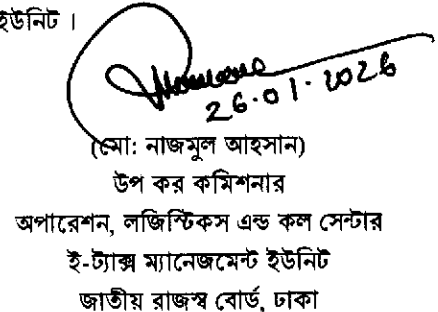 ইউনিট ।
26.01.2026
(মো: নাজমুল আহসান)
উপ কর কমিশনার
অপারেশন, লজিস্টিকস এন্ড কল সেন্টার
ই-ট্যাক্স ম্যানেজমেন্ট ইউনিট
জাতীয় রাজস্ব বোর্ড, ঢাকা